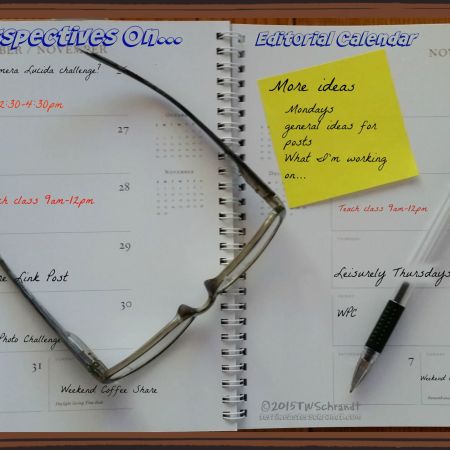 rspectives On...
Editorial Calendar
BER / NOVEMBER
NO
mera Lucida challenge?
2:30-4:30pm
27
28
ch class 9am-12pm
29
Link Post
30
Photo Challenge
31
Weekend Coffee Share
Daylight Saving Time Ends
NOVEMBER
More ideas
Mondays
general ideas for
posts
What I'm working
on...
Teach class 9am-12pm
Leisurely Thursdays
WPC
7
Weekend
©2015TWSchrandt